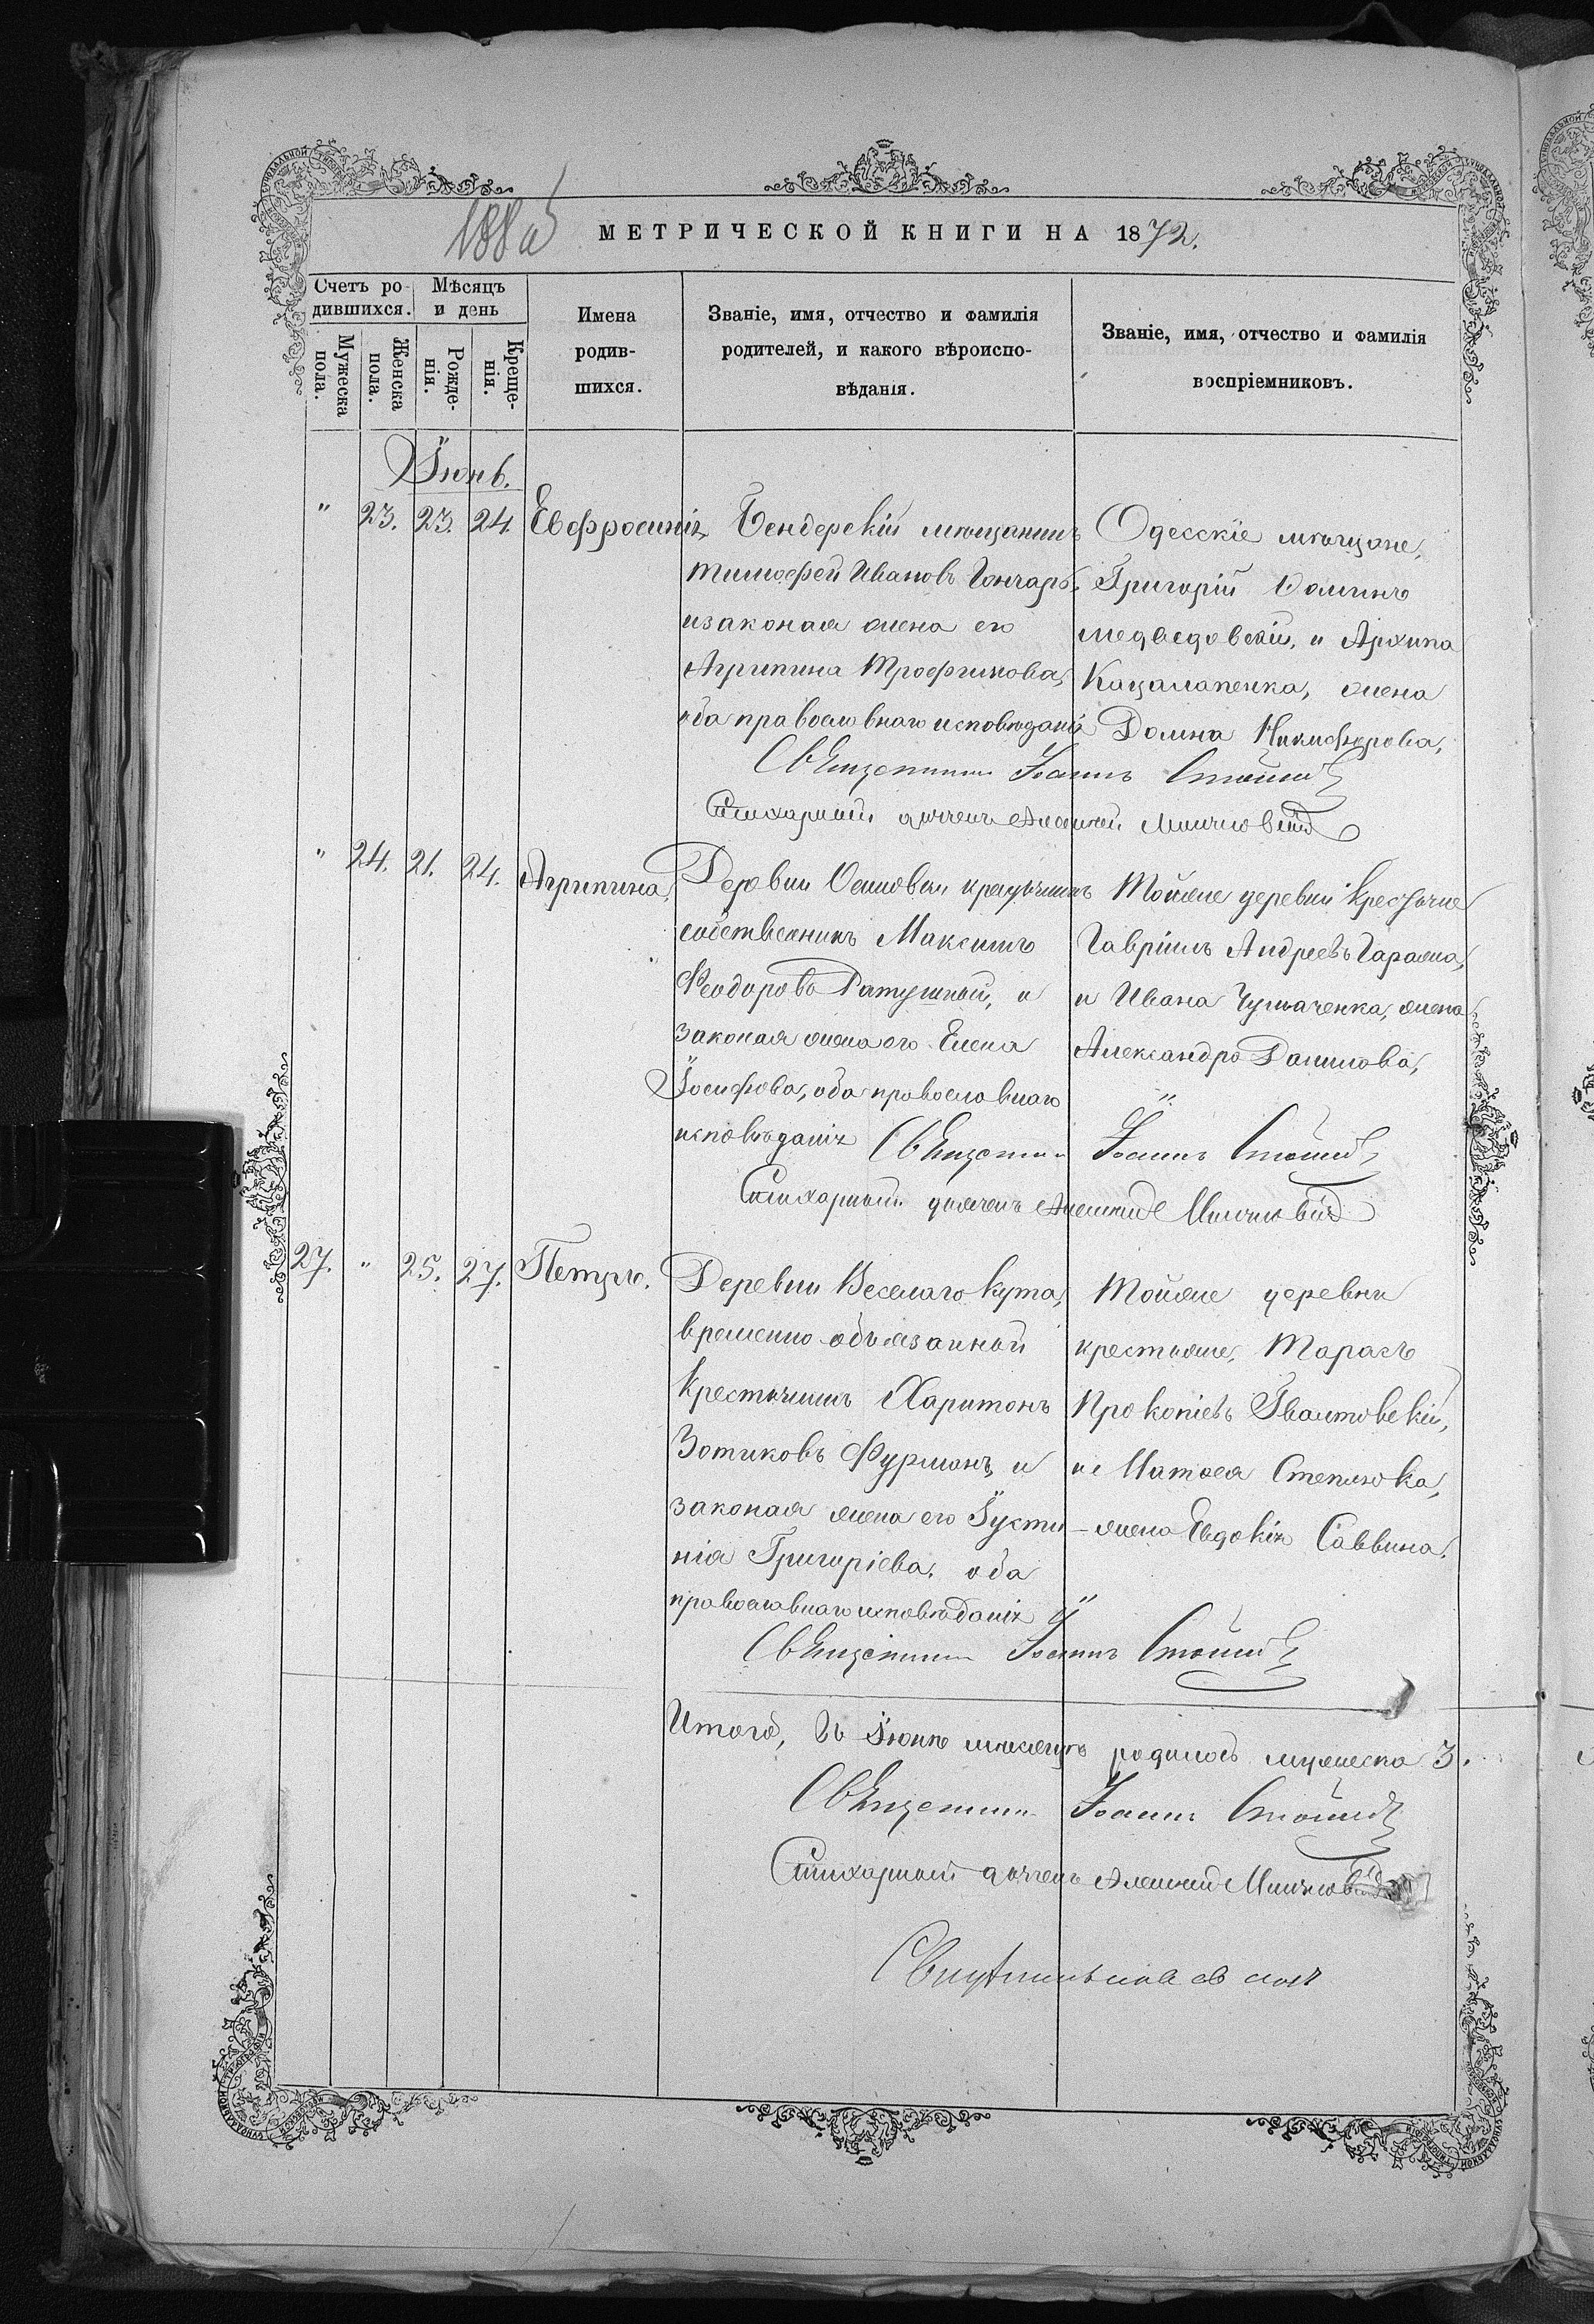 188а
МЕТРИЧЕСКОЙ КНИГИ НА 1872.
Счетъ ро-
дившихся.
Мѣсяцъ
и день
Мужеска
пола.
Женска
пола.
Рожде-
нія.
Креще-
нія.
Имена
родив-
шихся.
Званіе, имя, отчество и фамилія
родителей, и какого вѣроиспо-
вѣданія.
Званіе, имя, отчество и фамилія
воспріемниковъ.
Іюнь.
" 23. 23. 24. Евфросинія
Бендерскій мѣщанинъ
Тимофей Ивановъ Гончаръ,
и законая жена его
Агрипина Трофимова,
оба православнаго исповѣданія
Одесскіе мѣщане,
Григорій
Медведовскій, и Архипа
Кацалапенка, жена
Домна Никифорова,
Священникъ Іоаннъ
Стихарный дьячекъ Алексѣй
" 24. 21. 24. Агрипина,
Деревни крестьянинъ
собственникъ Максимъ
Феодоровъ Ратушный, и
законая жена его Елена
Іосифова, оба православнаго
исповѣданія
Тойже деревни крестьяне
Гавріилъ Андреевъ Гаража,
и Ивана Чумаченка, жена
Александра Данилова,
Священникъ Іоаннъ
Стихарный дьячекъ Алексѣй
27. " 25. 27. Петръ.
Деревни Веселаго Кута,
временно-обязанный
крестьянинъ Харитонъ
Зотиковъ Фурманъ, и
законая жена его Іусти-
нія Григоріева, оба
православнаго исповѣданія
Тойже деревни
крестьяне, Тарасъ
Прокопіевъ Гвалтовскій,
и Матвея Степлюка,
жена Евдокія Саввина.
Священникъ Іоаннъ
Итого, въ Іюнѣ мѣсяцѣ родилось мужеска 3.
Священникъ Іоаннъ
Стихарный дьячекъ Алексѣй